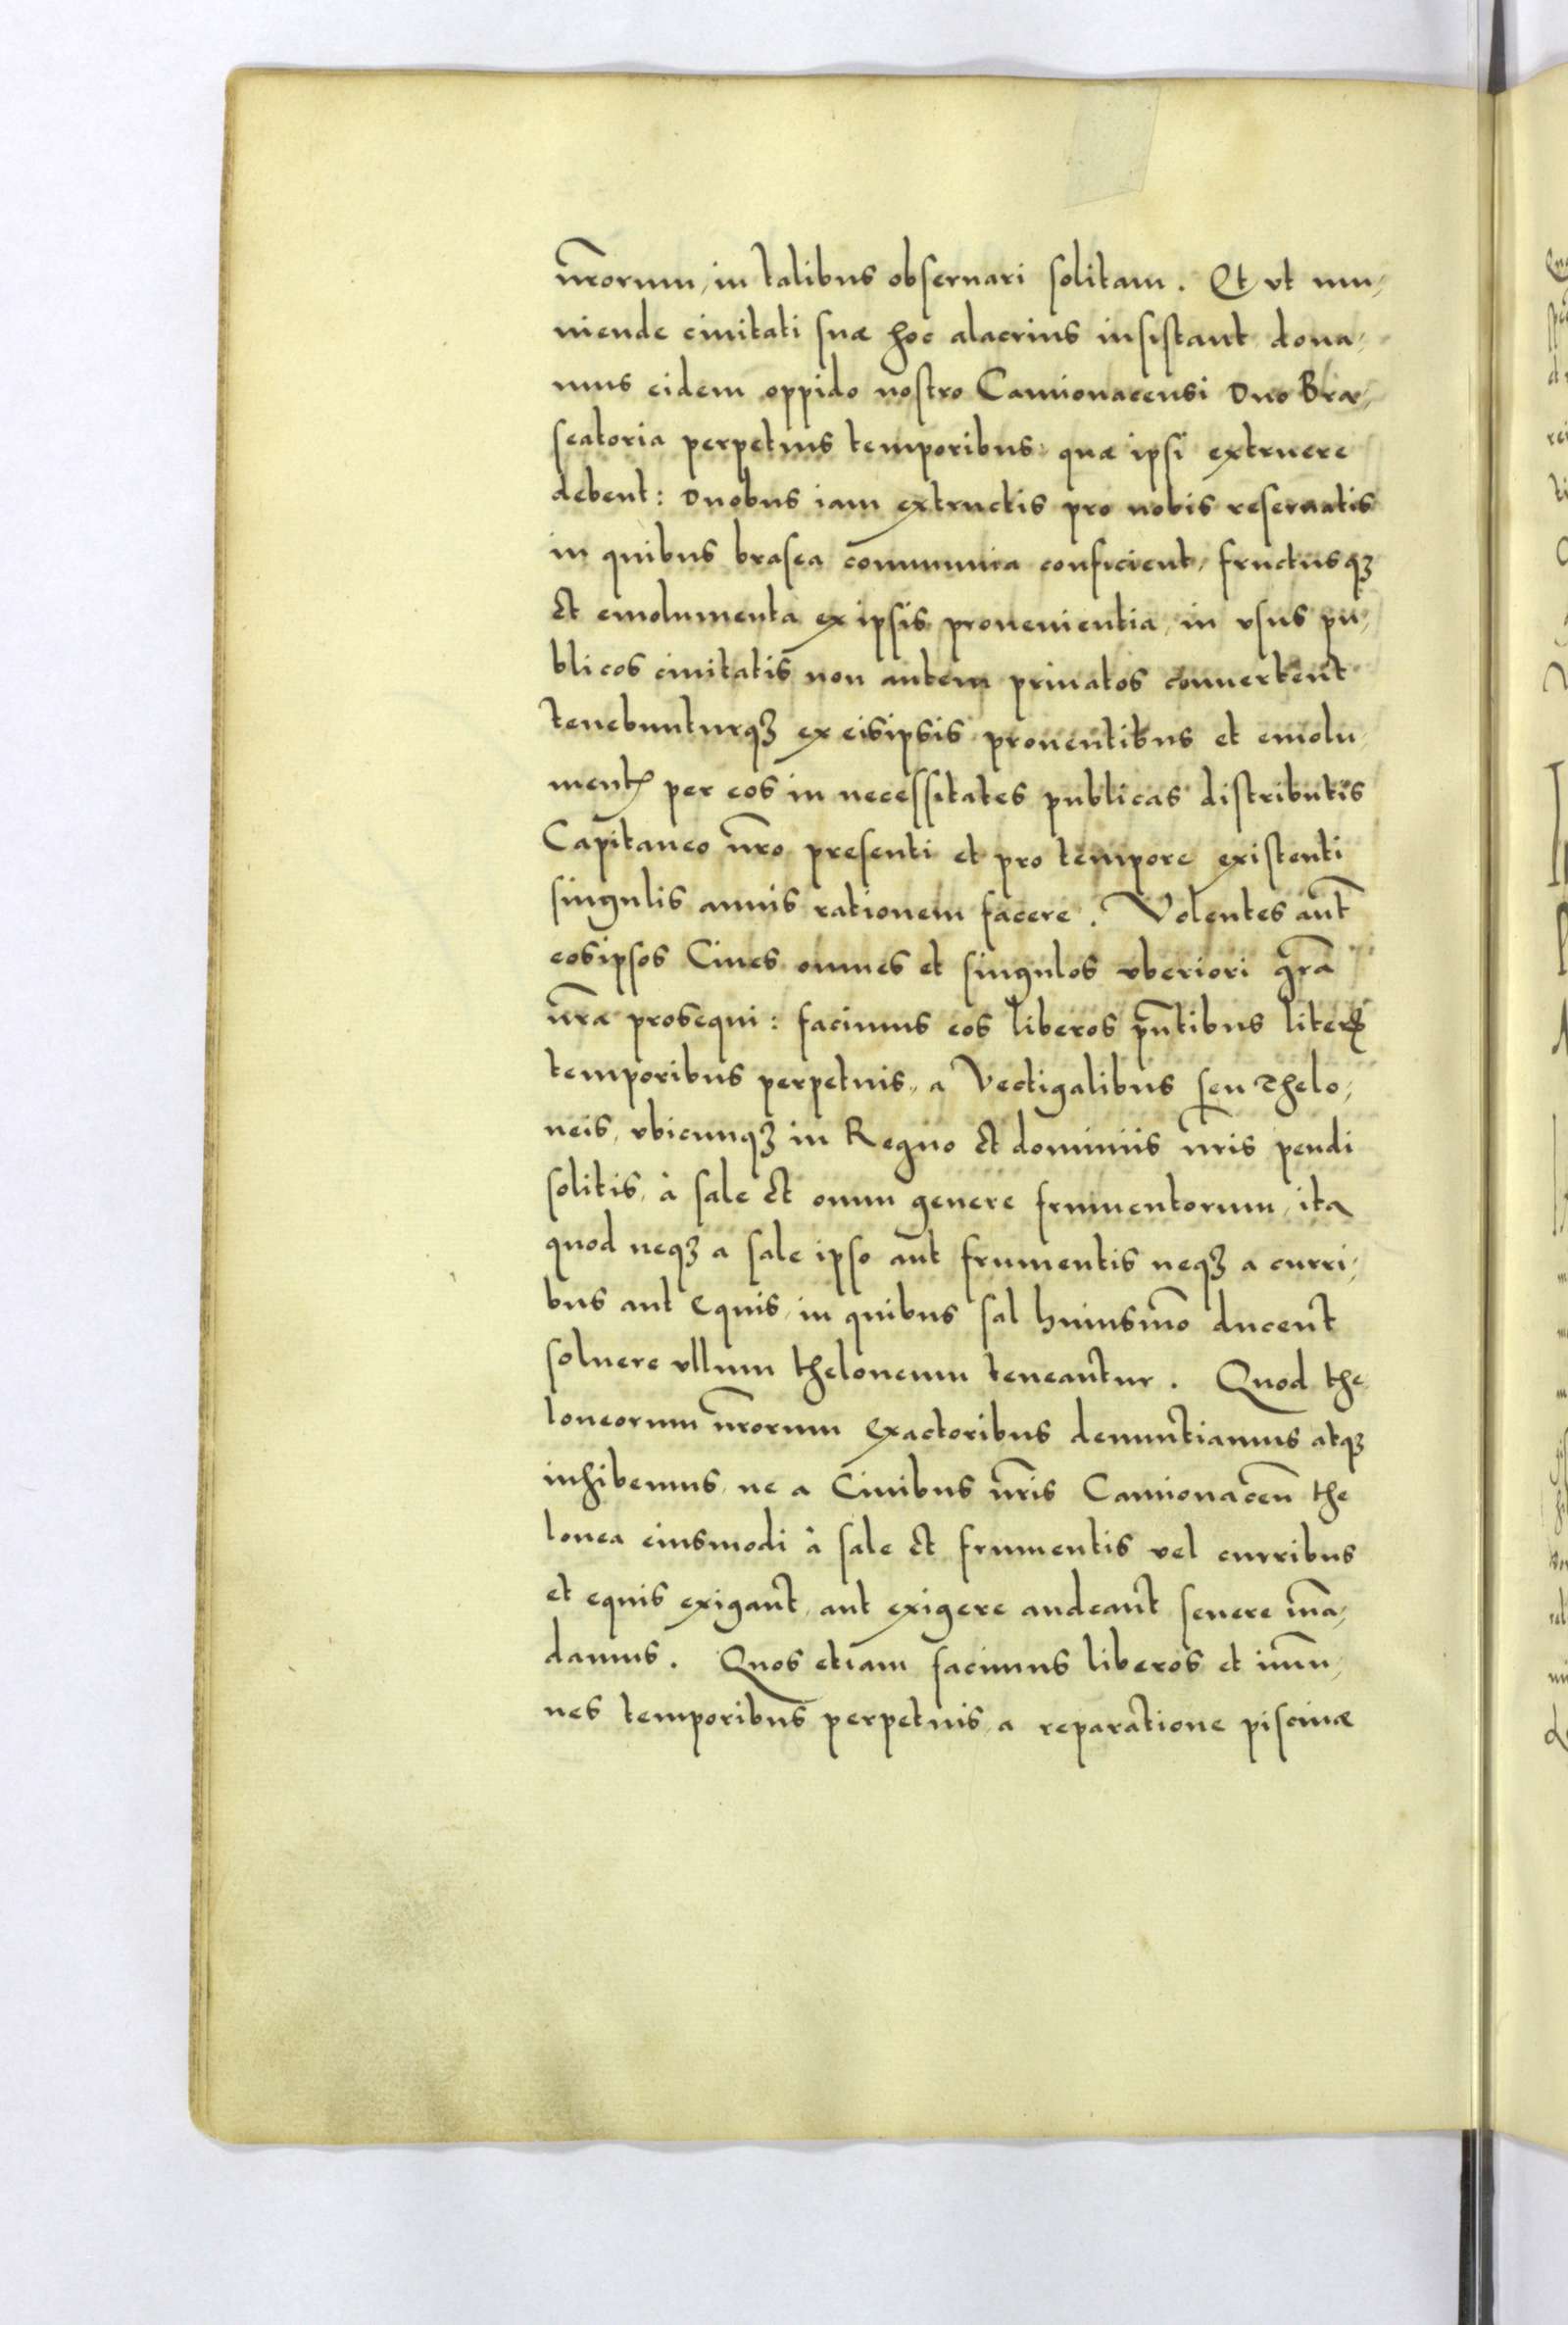 nr̃orum, in talibus obseruari solitam. Et vt mu,
niende ciuitati suæ hoc alacrius insistant, dona,
mus eidem oppido nostro Camionacensi Duo Bra,
seatoria perpetuis temporibus: quæ ipsi extruere
debent: Duobus iam extructis pro nobis reseruatis
in quibus brasea communia conficient, fructusqꝫ
et emolumenta ex ipsis prouenientia, in vsus pu,
blicos ciuitatis non autem priuatos conuertent
tenebunturqꝫ ex eisipsis prouentibus et emolu,
mentꝭ per eos in necessitates publicas distributis
Capitaneo nr̃o presenti et pro tempore existenti
singulis annis rationem facere. Volentes aũt
eosipsos Ciues omnes et singulos vberiori gr̃a
nr̃a prosequi: facimus eos liberos pñtibus literꝭ
temporibus perpetuis, a Vectigalibus seu Thelo,
neis, vbicunqꝫ in Regno et dominiis nr̃is pendi
solitis, à sale et omni genere frumentorum, ita
quod neqꝫ a sale ipso aut frumentis neqꝫ a curri,
bus aut Equis, in quibus sal huiusmõ ducent
soluere vllum theloneum teneantur. Quod the,
loneorum nr̃orum Exactoribus denuntiamus atqꝫ
inhibemus, ne a Ciuibus nr̃is Camionaceñ the
lonea eiusmodi à sale et frumentis vel curribus
et equis exigant, aut exigere audeant seuere mã,
damus. Quos etiam facimus liberos et im̃u,
nes temporibus perpetuis, a reparatione piscinæ